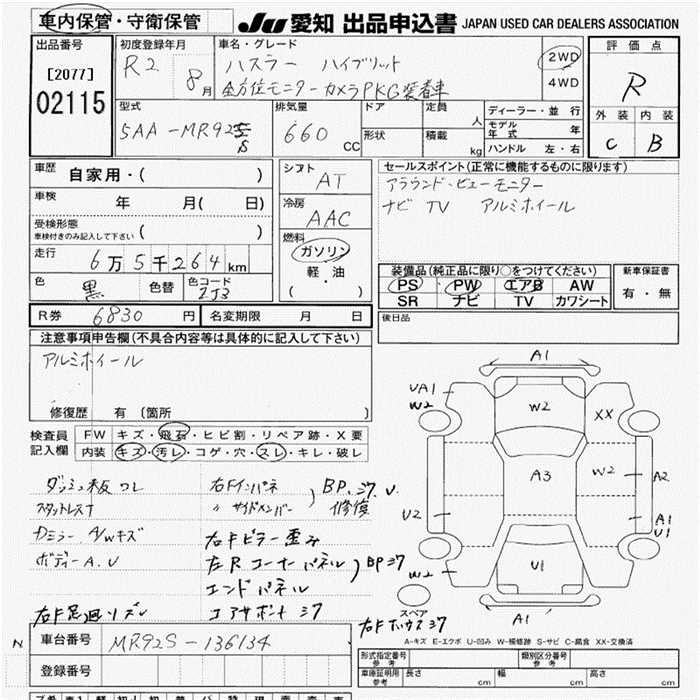 車内保管・守衛保管
JU 愛知 出品申込書 JAPAN USED CAR DEALERS ASSOCIATION
出品番号
[2077]
02115
初度登録年月
R2 8月
車名・グレード
ハスラー ハイブリット
全方位モニターカメラPKG装着車
2WD
4WD
評価点
R
外装 内装
C B
型式
5AA-MR92S
排気量
660 CC
ドア
形状
定員 人
積載 kg
ディーラー・並行
モデル年式 年
ハンドル 左・右
車歴
自家用・( )
車検
年 月( 日)
受検形態
車検付きのみ記入して下さい ( )
走行
6万5千264km
色
黒
色替
色コード
ZJ3
シフト
AT
冷房
AAC
燃料
ガソリン
軽・油
( ・ )
セールスポイント(正常に機能するものに限ります)
アラウンド・ビューモニター
ナビ TV アルミホイール
装備品(純正品に限り○をつけてください)
PS PW エアB AW
SR ナビ TV カワシート
新車保証書
有・無
R券 6830円
名変期限 月 日
後日品
注意事項申告欄(不具合内容等は具体的に記入して下さい)
アルミホイール
修復歴 有(箇所 )
検査員
記入欄
FW キズ・飛石・ヒビ割・リペア跡・X要
内装 キズ・汚レ・コゲ・穴・スレ・キレ・破レ
ダッシュ板コレ
スタットレスT
Dミラー A/Wキズ
ボディーA.U
右F足廻リズレ
右Fインパネ
〃 サイドメンバー
BP.ヌケ.U.
修復
右Fピラー歪み
左Rコーナーパネル
エンドパネル
BPヌケ
コアサポートヌケ
右Fボックスヌケ
A1
UA1
W2
W2
XX
A3
W2
A2
U2
A1
U1
W2
U1
A1
スペア
A-キズ E-エクボ U-凹み W-補修跡 S-サビ C-腐食 XX-交換済
N
車台番号
MR92S-136134
登録番号
形式指定番号
参考
類別区分番号
参考
車庫証明用
参考
長さ cm 幅 cm 高さ cm